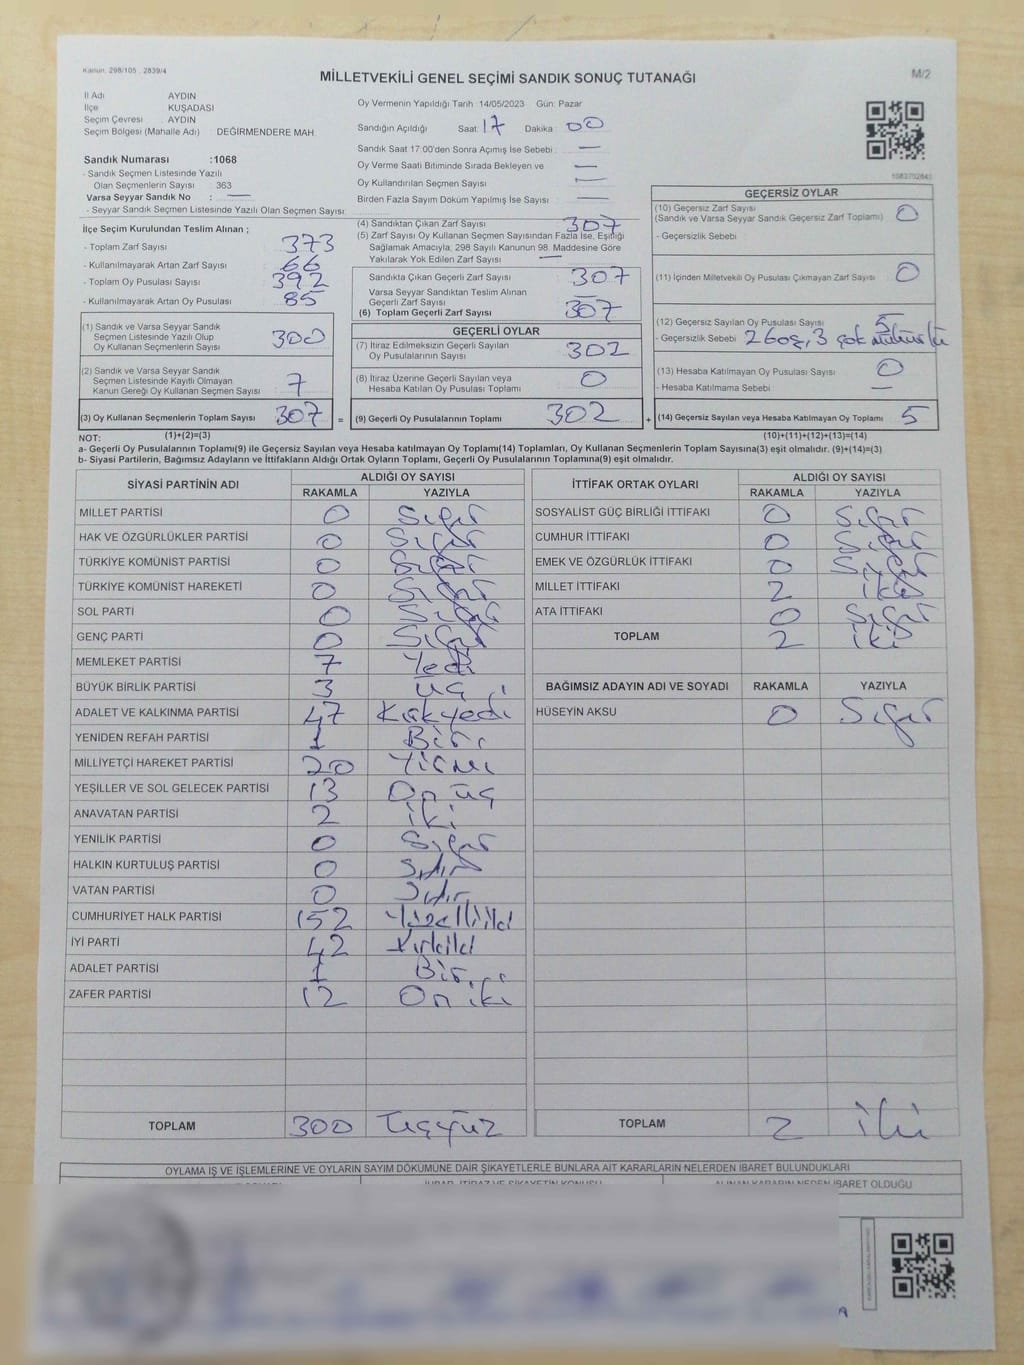 Kanun: 298/105 , 2839/4
MİLLETVEKİLİ GENEL SEÇİMİ SANDIK SONUÇ TUTANAĞI
M/2
İl Adı AYDIN
İlçe KUŞADASI
Seçim Çevresi AYDIN
Seçim Bölgesi (Mahalle Adı) DEĞİRMENDERE MAH.
Oy Vermenin Yapıldığı Tarih: 14/05/2023 Gün: Pazar
Sandığın Açıldığı Saat: 17 Dakika : 00
Sandık Saat 17:00'den Sonra Açımış İse Sebebi : —
Oy Verme Saati Bitiminde Sırada Bekleyen ve
Oy Kullandırılan Seçmen Sayısı —
Birden Fazla Sayım Döküm Yapılmış İse Sayısı : —
Sandık Numarası :1068
- Sandık Seçmen Listesinde Yazılı
Olan Seçmenlerin Sayısı : 363
Varsa Seyyar Sandık No : —
- Seyyar Sandık Seçmen Listesinde Yazılı Olan Seçmen Sayısı:
İlçe Seçim Kurulundan Teslim Alınan ;
- Toplam Zarf Sayısı : 373
- Kullanılmayarak Artan Zarf Sayısı : 66
- Toplam Oy Pusulası : 392
- Kullanılmayarak Artan Oy Pusulası : 85
(1) Sandık ve Varsa Seyyar Sandık
Seçmen Listesinde Yazılı Olup
Oy Kullanan Seçmenlerin Sayısı 300
(2) Sandık ve Varsa Seyyar Sandık
Seçmen Listesinde Kayıtlı Olmayan
Kanun Gereği Oy Kullanan Seçmen Sayısı 7
(3) Oy Kullanan Seçmenlerin Toplam Sayısı 307 =
(1)+(2)=(3)
(4) Sandıktan Çıkan Zarf Sayısı : 307
(5) Zarf Sayısı Oy Kullanan Seçmen Sayısından Fazla İse, Eşitliği
Sağlamak Amacıyla, 298 Sayılı Kanunun 98. Maddesine Göre
Yakılarak Yok Edilen Zarf Sayısı : —
Sandıkta Çıkan Geçerli Zarf Sayısı : 307
Varsa Seyyar Sandıktan Teslim Alınan
Geçerli Zarf Sayısı —
(6) Toplam Geçerli Zarf Sayısı : 307
GEÇERLİ OYLAR
(7) İtiraz Edilmeksizin Geçerli Sayılan
Oy Pusulalarının Sayısı : 302
(8) İtiraz Üzerine Geçerli Sayılan veya
Hesaba Katılan Oy Pusulası Toplamı : 0
(9) Geçerli Oy Pusulalarının Toplamı : 302 +
GEÇERSİZ OYLAR
(10) Geçersiz Zarf Sayısı
(Sandık ve Varsa Seyyar Sandık Geçersiz Zarf Toplamı) : 0
- Geçersizlik Sebebi :
(11) İçinden Milletvekili Oy Pusulası Çıkmayan Zarf Sayısı : 0
(12) Geçersiz Sayılan Oy Pusulası Sayısı : 5
- Geçersizlik Sebebi : 2 boş, 3 çok mühürlü
(13) Hesaba Katılmayan Oy Pusulası Sayısı : 0
- Hesaba Katılmama Sebebi : —
(14) Geçersiz Sayılan veya Hesaba Katılmayan Oy Toplamı : 5
(10)+(11)+(12)+(13)=(14)
NOT:
a- Geçerli Oy Pusulalarının Toplamı(9) ile Geçersiz Sayılan veya Hesaba Katılmayan Oy Toplamı(14) Toplamları, Oy Kullanan Seçmenlerin Toplam Sayısına(3) eşit olmalıdır. (9)+(14)=(3)
b- Siyasi Partilerin, Bağımsız Adayların ve İttifakların Aldığı Ortak Oyların Toplamı, Geçerli Oy Pusulalarının Toplamına(9) eşit olmalıdır.
SİYASİ PARTİNİN ADI ALDIĞI OY SAYISI
RAKAMLA YAZIYLA
MİLLET PARTİSİ 0 Sıfır
HAK VE ÖZGÜRLÜKLER PARTİSİ 0 Sıfır
TÜRKİYE KOMÜNİST PARTİSİ 0 Sıfır
TÜRKİYE KOMÜNİST HAREKETİ 0 Sıfır
SOL PARTİ 0 Sıfır
GENÇ PARTİ 0 Sıfır
MEMLEKET PARTİSİ 7 Yedi
BÜYÜK BİRLİK PARTİSİ 3 Üç
ADALET VE KALKINMA PARTİSİ 47 Kırkyedi
YENİDEN REFAH PARTİSİ 1 Bir
MİLLİYETÇİ HAREKET PARTİSİ 20 Yirmi
YEŞİLLER VE SOL GELECEK PARTİSİ 13 On üç
ANAVATAN PARTİSİ 2 iki
YENİLİK PARTİSİ 0 Sıfır
HALKIN KURTULUŞ PARTİSİ 0 Sıfır
VATAN PARTİSİ 0 Sıfır
CUMHURİYET HALK PARTİSİ 152 Yüzelliiki
İYİ PARTİ 42 Kırkiki
ADALET PARTİSİ 1 Bir
ZAFER PARTİSİ 12 On iki
TOPLAM 300 Üçyüz
İTTİFAK ORTAK OYLARI ALDIĞI OY SAYISI
RAKAMLA YAZIYLA
SOSYALİST GÜÇ BİRLİĞİ İTTİFAKI 0 Sıfır
CUMHUR İTTİFAKI 0 Sıfır
EMEK VE ÖZGÜRLÜK İTTİFAKI 0 Sıfır
MİLLET İTTİFAKI 2 iki
ATA İTTİFAKI 0 Sıfır
TOPLAM 2 iki
BAĞIMSIZ ADAYIN ADI VE SOYADI RAKAMLA YAZIYLA
HÜSEYİN AKSU 0 Sıfır
TOPLAM 2 iki
OYLAMA İŞ VE İŞLEMLERİNE VE OYLARIN SAYIM DÖKÜMÜNE DAİR ŞİKAYETLERLE BUNLARA AİT KARARLARIN NELERDEN İBARET BULUNDUKLARI